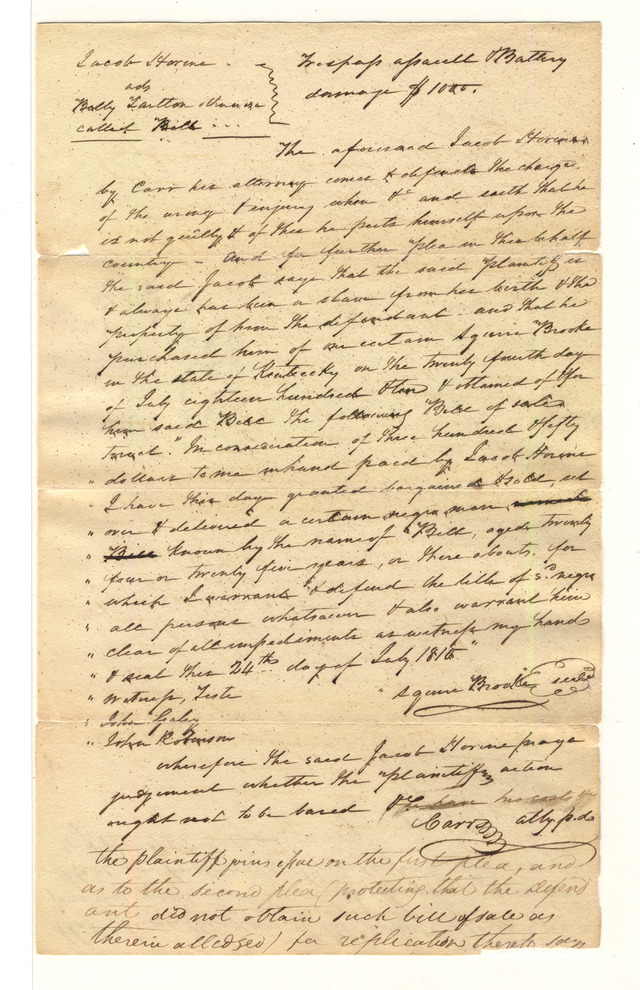 Jacob Horine
ads
Billy Tarlton otherwise
called Bill
Trespass assault & Battery
damage $1000.
The aforesaid Jacob Horine
by Carr his attorney comes & defends the charge
of the wrong & injury when &c and saith that he
is not guilty & of this he puts himself upon the
country - And for further plea in this behalf
the said Jacob says that the said plaintiff is
& always has been a slave from his birth & the
property of him the defendant - and that he
purchased him of one certain Squire Brooke
in the state of Kentucky on the twenty fourth day
of July eighteen hundred & ten & obtained of & for
him said Bill the following "Bill of sale
to wit." In consideration of three hundred & fifty
" dollars to me inhand paid by Jacob Horine
" I have this day granted bargained & sold, set
" over & delivered a certain negro man
" Bill known by the name of Bill, aged twenty
" four or twenty five years, or there abouts. for
" which I warrant & defend the title of sd. negro
" all persons whatsoever & also warrant him
" clear of all impediments as witness my hand
" & seal this 24th day of July 1810"
" witness, Teste " Squire Brooke seal
" John Galey
" John Robinson
wherefore the said Jacob Horine prays
judgement whether the plaintiffs action
ought not to be bared & to have his costs &c
Carr atty p.d
the plaintiff joins issue on the first plea, and
as to the second plea (protesting that the defend
ant did not obtain such bill of sale as
therein alledged) for replication thereto says